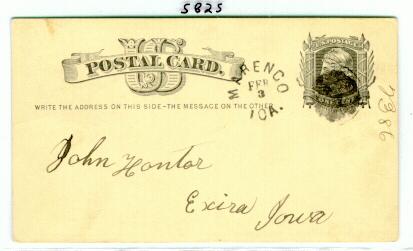 5825
U.S. POSTAGE
US
POSTAL CARD.
MARENGO
FEB
3
IOA.
WRITE THE ADDRESS ON THIS SIDE-THE MESSAGE ON THE OTHER
ONE CENT
John Hontor
Exira Iowa